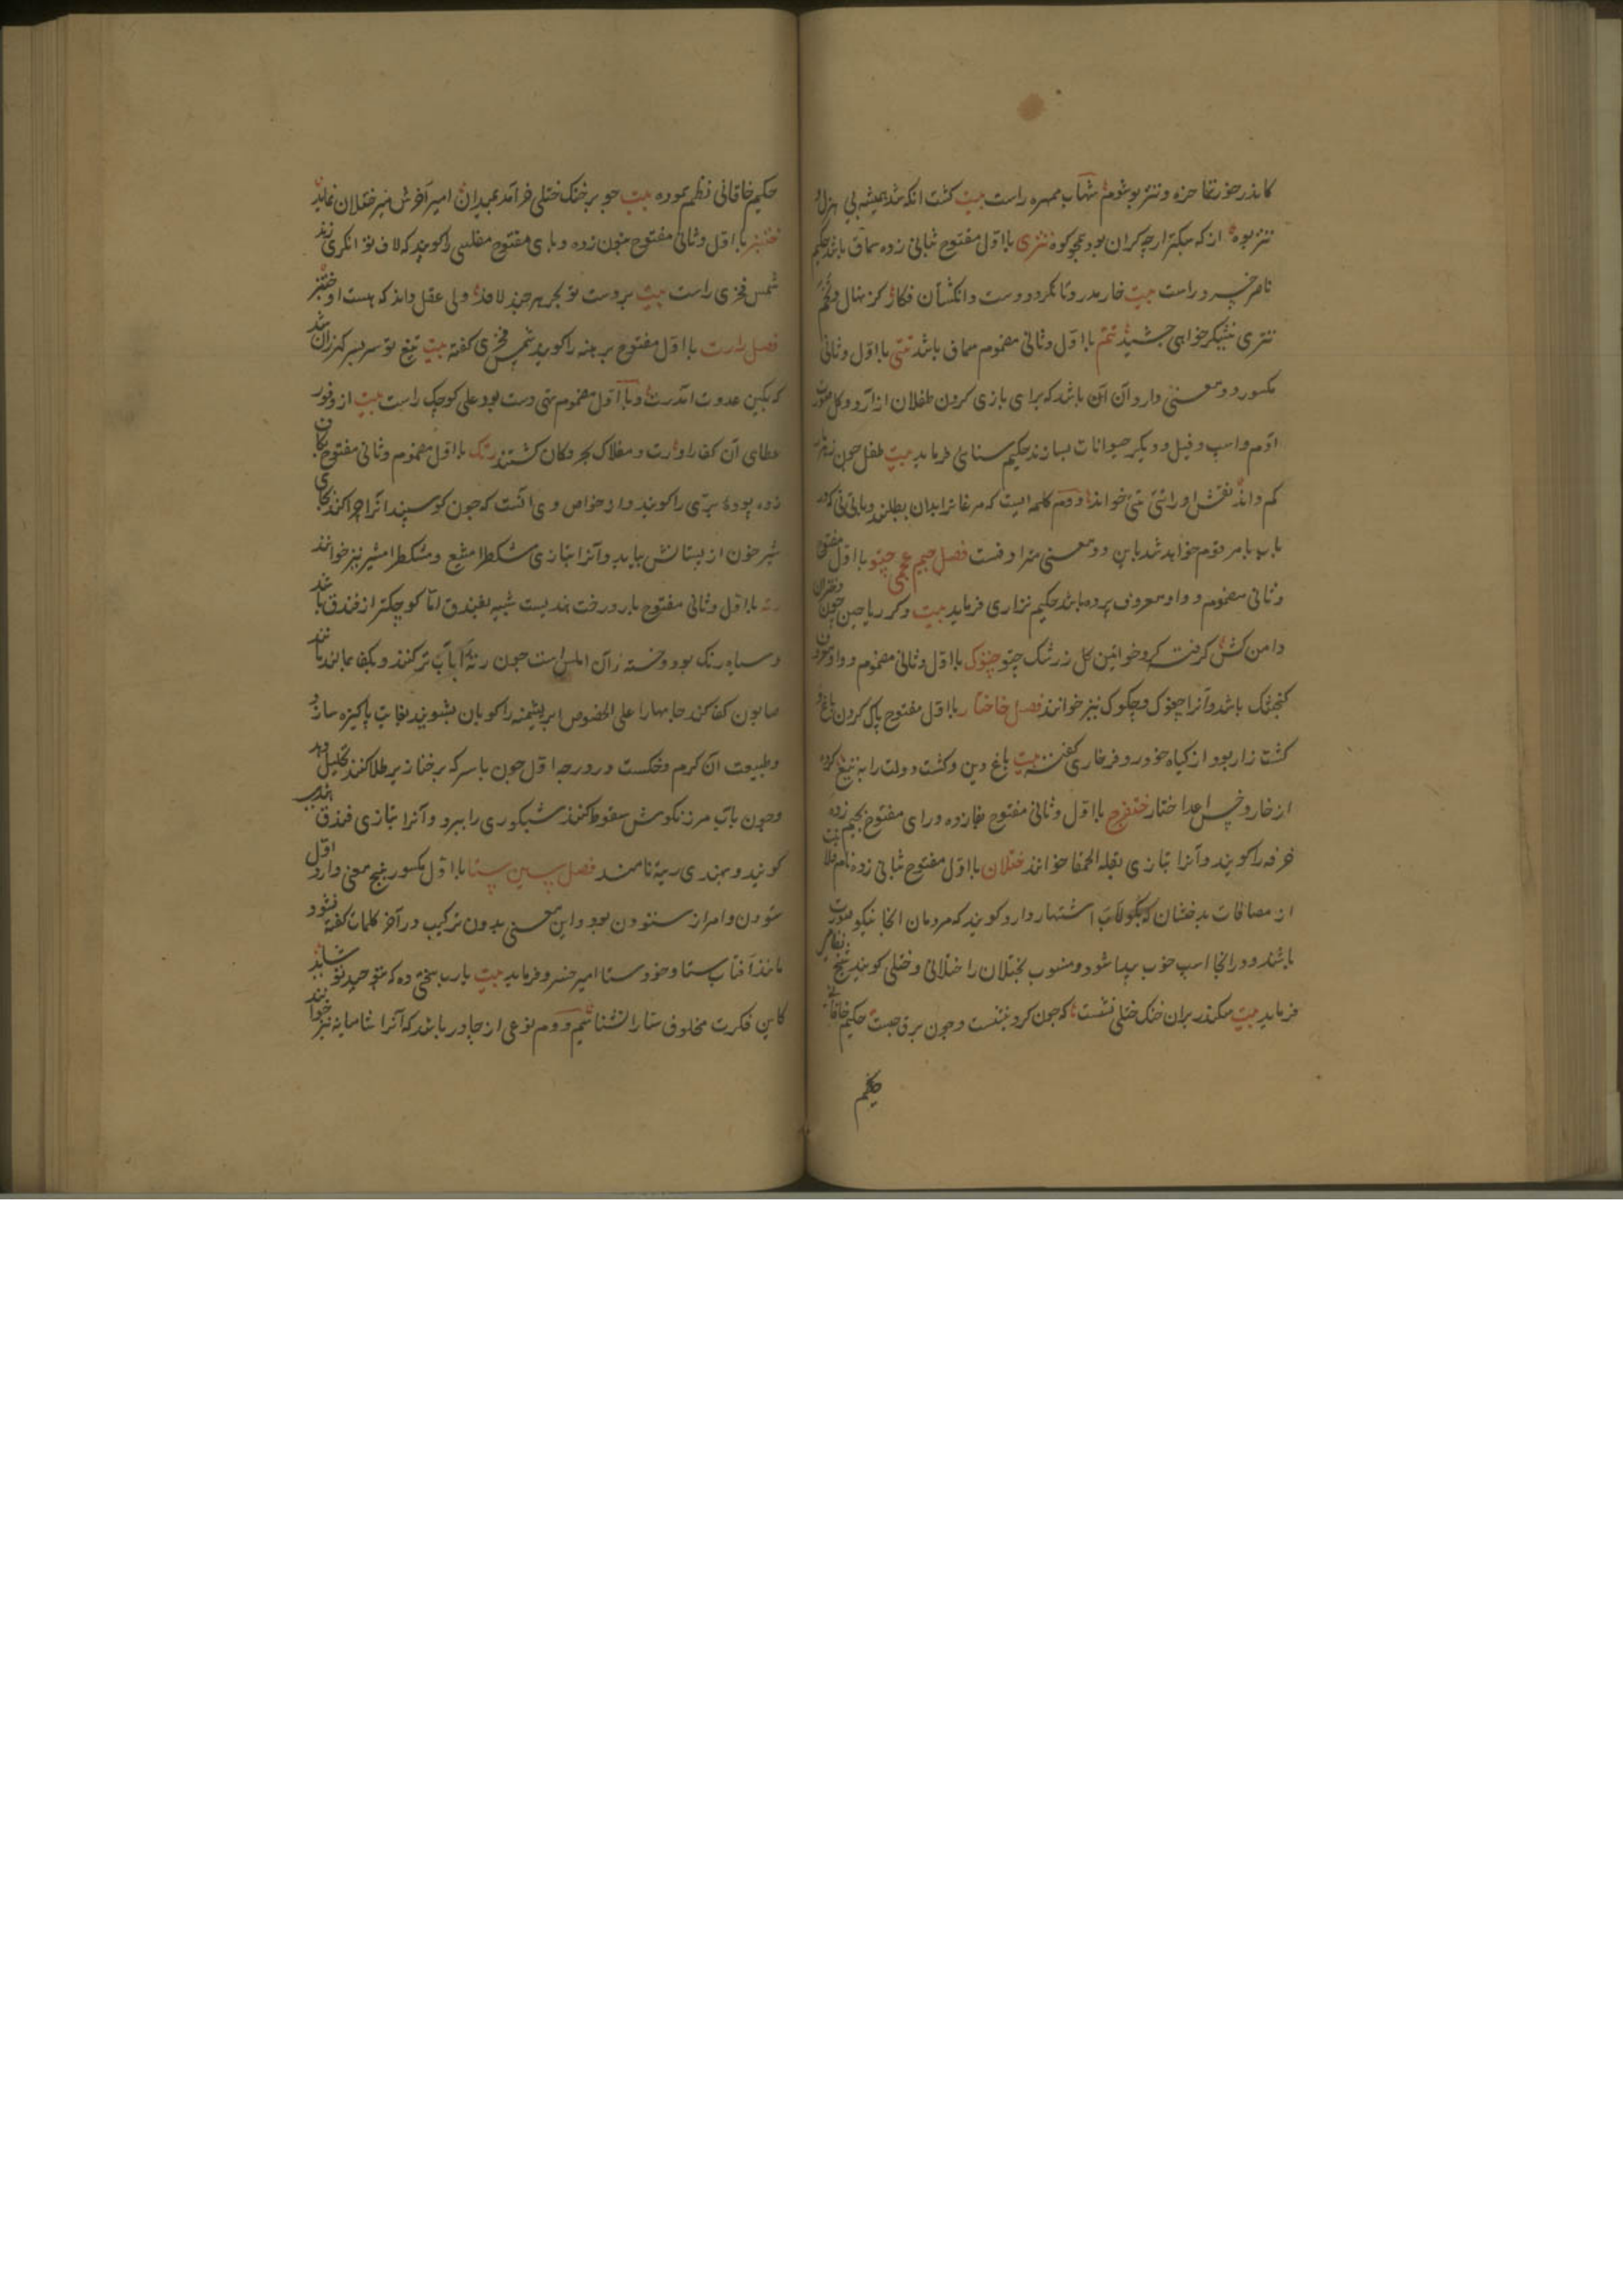 کاندر خورتقا خزه و تتر بو شوم شهاب مهمره راست بیت کشت انکه شد همیشه بی هزل و
تتر بوه از که سبکتر ارچه کران بود همچو کوه تتری با اول مفتوح بثانی زده سماق باشد حکیم
ناصر خسرو راست بیت خار بدرو تا نکرد دست و انکشتان فکار کز نهال و تخم
تتری نیشکر خواهی چشید تتم با اول و ثانی مضموم سماق باشد تتی با اول و ثانی
مکسور دو معنی دارد آن آن باشد که برای بازی کردن طفلان از آرد و کل صورت
آدم و اسپ و فیل و دیکر حیوانات بسازند حکیم سنائی فرماید بیت طفل چون زهر
کم داند نقش او را تتی تتی خواند دوم کلمه ایست که مرغانرا بدان بطلبند و بابی تی که در
باب با مرقوم خواهد شد باین دو معنی مترادفست فصل جیم عجمی چتو با اول مفتوح
و ثانی مضموم و واو معروف پرده باشد حکیم نزاری فرماید بیت و کر ریاحین چون دختران
دامن کش کرفت کرد خواتین کل زرشک چتو چتوک با اول و ثانی مضموم و واو معروف
کنجشک باشد و آنرا چغوک و چکوک نیز خوانند فصل خا ختار با اول مفتوح پاک کردن باغ و
کشت زار بود از کیاه خودرو فرخاری کفته بیت باغ دین و کشت دولت را به تیغ کرده
از خار و خس اعدا ختار ختفرج با اول و ثانی مفتوح بفا زده و رای مفتوح بجیم زده
خرفه را کویند و آنرا بتازی بقلة الحمقا خوانند ختلان با اول مفتوح بثانی زده نام ولایت
از مضافات بدخشان که بکولاب اشتهار دارد کویند که مردمان انجا نیکو صورت
باشند و در انجا اسپ خوب پیدا شود و منسوب بختلان را ختلانی و ختلی کویند شیخ نظامی
فرماید بیت میکذر بران خنک ختلی نشست که چون کرد بنشست و چون برق جست حکیم خاقانی
حکیم
حکیم خاقانی نظم نموده بیت چو بر خنک ختلی خرامد بمیدان امیر آخرش میر ختلان نماید
ختنبر با اول و ثانی مفتوح بنون زده و بای مفتوح مفلسی را کویند که لاف توانکری زند
شمس فخری راست بیت بر دست تو بحر هر چند لافد ولی عقل داند که هست او ختنبر
فصل را رت با اول مفتوح برهنه را کویند شمس فخری کفته بیت تیغ تو سر بسر کهر زان شد
که بکین عدوت آمد رت و با اول مضموم تهی دست بود علی کوچک راست بیت از وفور
عطای آن کف راد رت و مفلاک بحر و کان کشتند رتک با اول مضموم و ثانی مفتوح بکاف
زده پودۀ بری را کویند و از خواص وی آنست که چون کوسپند آنرا چرا کند بجای
شیر خون از پستانش بیاید و آنرا بتازی مشکطرا مشیع و مشکطرا مشیر نیز خوانند
رته با اول و ثانی مفتوح بار درخت هندیست شبیه بفندق اما کوچکتر از فندق باشد
و سیاه رنک بود و خستۀ آن املس است چون رته را بآب تر کنند و بکف بمالند مانند
صابون کف کند جامها را علی الخصوص ابریشمینه را کو بان بشویند بغایت پاکیزه سازد
و طبیعت آن کرم و خشکست در درجه اول چون با سرکه بر خنازیر طلا کنند تحلیل دهد
و چون بآب مرزنکوش سقوط کنند شبکوری را ببرد و آنرا بتازی فندق هندی
کویند و بهندی ریته نامند فصل سین ستا با اول مکسور پنج معنی دارد اول
ستودن و امر از ستودن بود و این معنی بدون ترکیب در آخر کلمات کفته نشود
مانند آفتاب ستا و خود ستا امیر خسرو فرماید بیت یارب سخنی ده که بتوحید تو شاید
کاین فکرت مخلوق ستا را نشناسیم دوم نوعی از چادر باشد که آنرا شامیانه نیز خوانند